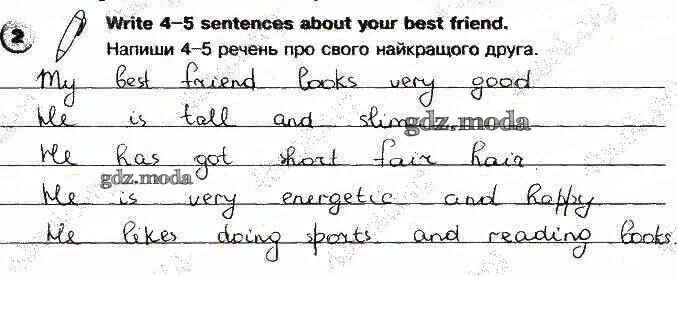 2
Write 4–5 sentences about your best friend.
Напиши 4–5 речень про свого найкращого друга.
My best friend looks very good
He is tall and slim
gdz.moda
He has got short fair hair
gdz.moda
He is very energetic and happy
He likes doing sports and reading books.